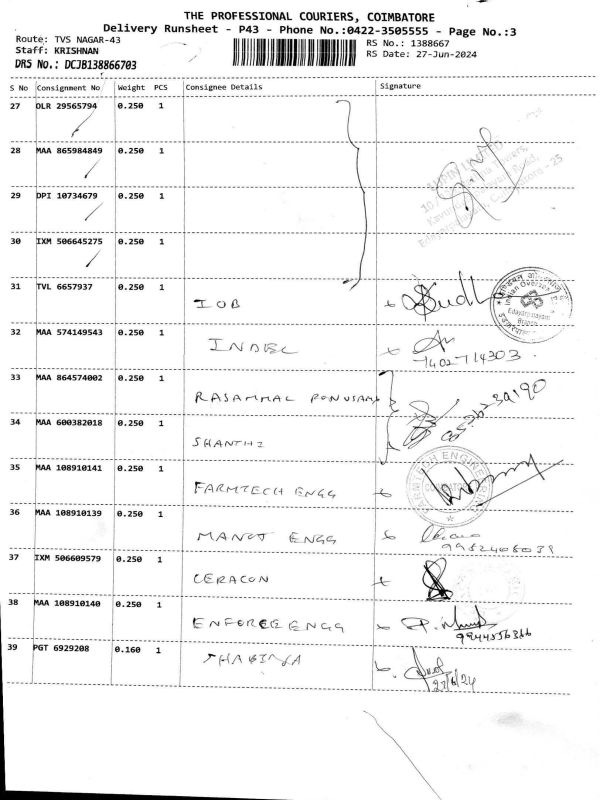 THE PROFESSIONAL COURIERS, COIMBATORE
Delivery Runsheet - P43 - Phone No.:0422-3505555 - Page No.:3
Route: TVS NAGAR-43
RS No.: 1388667
Staff: KRISHNAN
RS Date: 27-Jun-2024
DRS No.: DCJB138866703
S No Consignment No Weight PCS Consignee Details Signature
27 OLR 29565794 0.250 1
28 MAA 865984849 0.250 1
LUPIN LIMITED
29 DPI 10734679 0.250 1
30 IXM 506645275 0.250 1
31 TVL 6657937 0.250 1
IOB
Indian Overseas
Edayarpalayam
Branch
32 MAA 574149543 0.250 1
INDEL
7402714303
33 MAA 864574002 0.250 1
RASAMMAL PONUSAMY
34 MAA 600382018 0.250 1
SHANTHI
35 MAA 108910141 0.250 1
FARMTECH ENGG
36 MAA 108910139 0.250 1
MANOJ ENGG
9952408039
37 IXM 506609579 0.250 1
CERACON
38 MAA 108910140 0.250 1
ENFORCE ENGG
9944556366
39 PGT 6929208 0.160 1
27/6/24